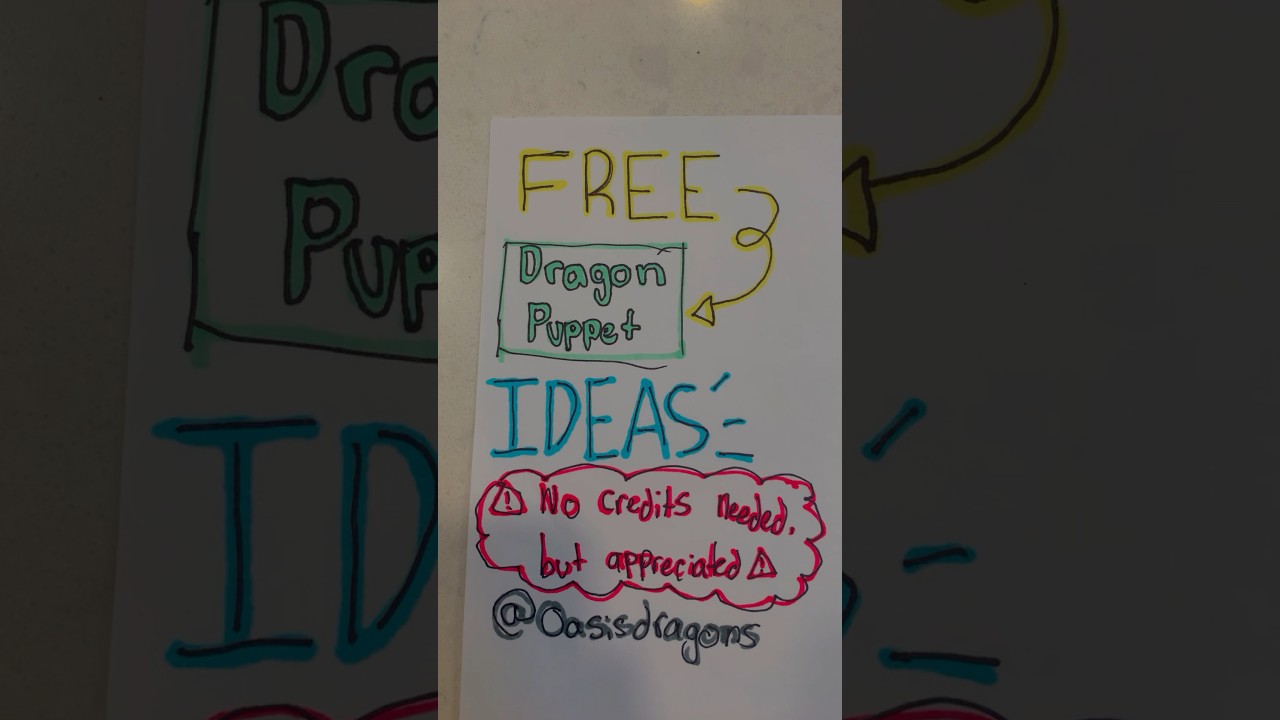 FREE
Dragon
Puppet
IDEAS
⚠ No credits needed,
but appreciated ⚠
@Oasisdragons